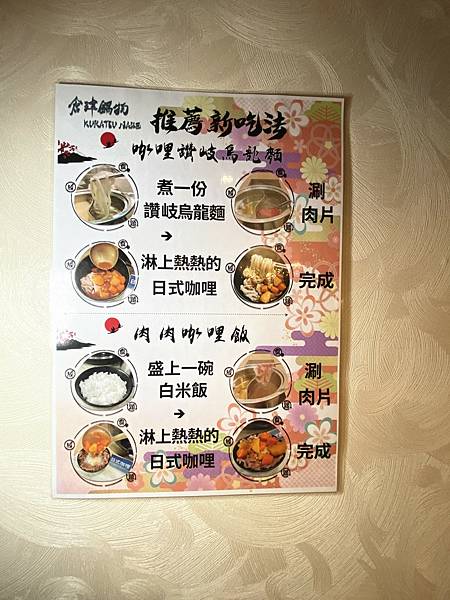 倉津鍋物
KURATSU NABE
推薦新吃法
咖哩讚岐烏龍麵
煮一份
讚岐烏龍麵
→
涮
肉片
淋上熱熱的
日式咖哩
完成
肉肉咖哩飯
盛上一碗
白米飯
→
涮
肉片
淋上熱熱的
日式咖哩
完成